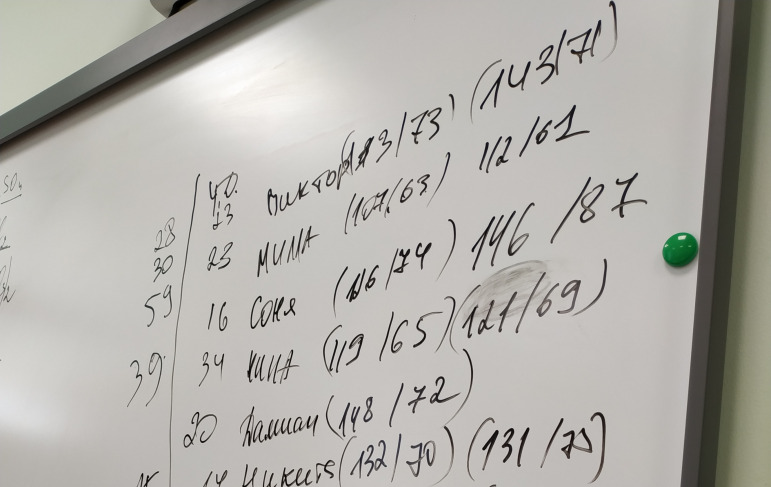 40.
28 23 Виктор (113/73) (143/71)
30 23 МИМА (107/63) 112/61
59 16 СОНЯ (116/74) 146/87
39 34 НИНА (119/65) (121/69)
20 Дамиан (148/72)
14 Никита (132/70) (131/75)